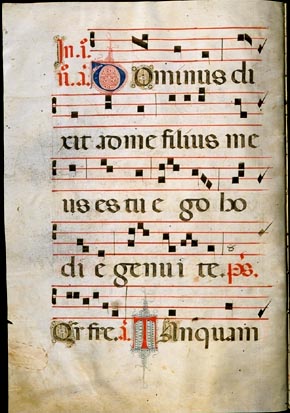 In i.
n. a. Dominus di
xit ad me filius me
us es tu e go ho
di e genui te. ps.
Qr fre. a. Tanquam